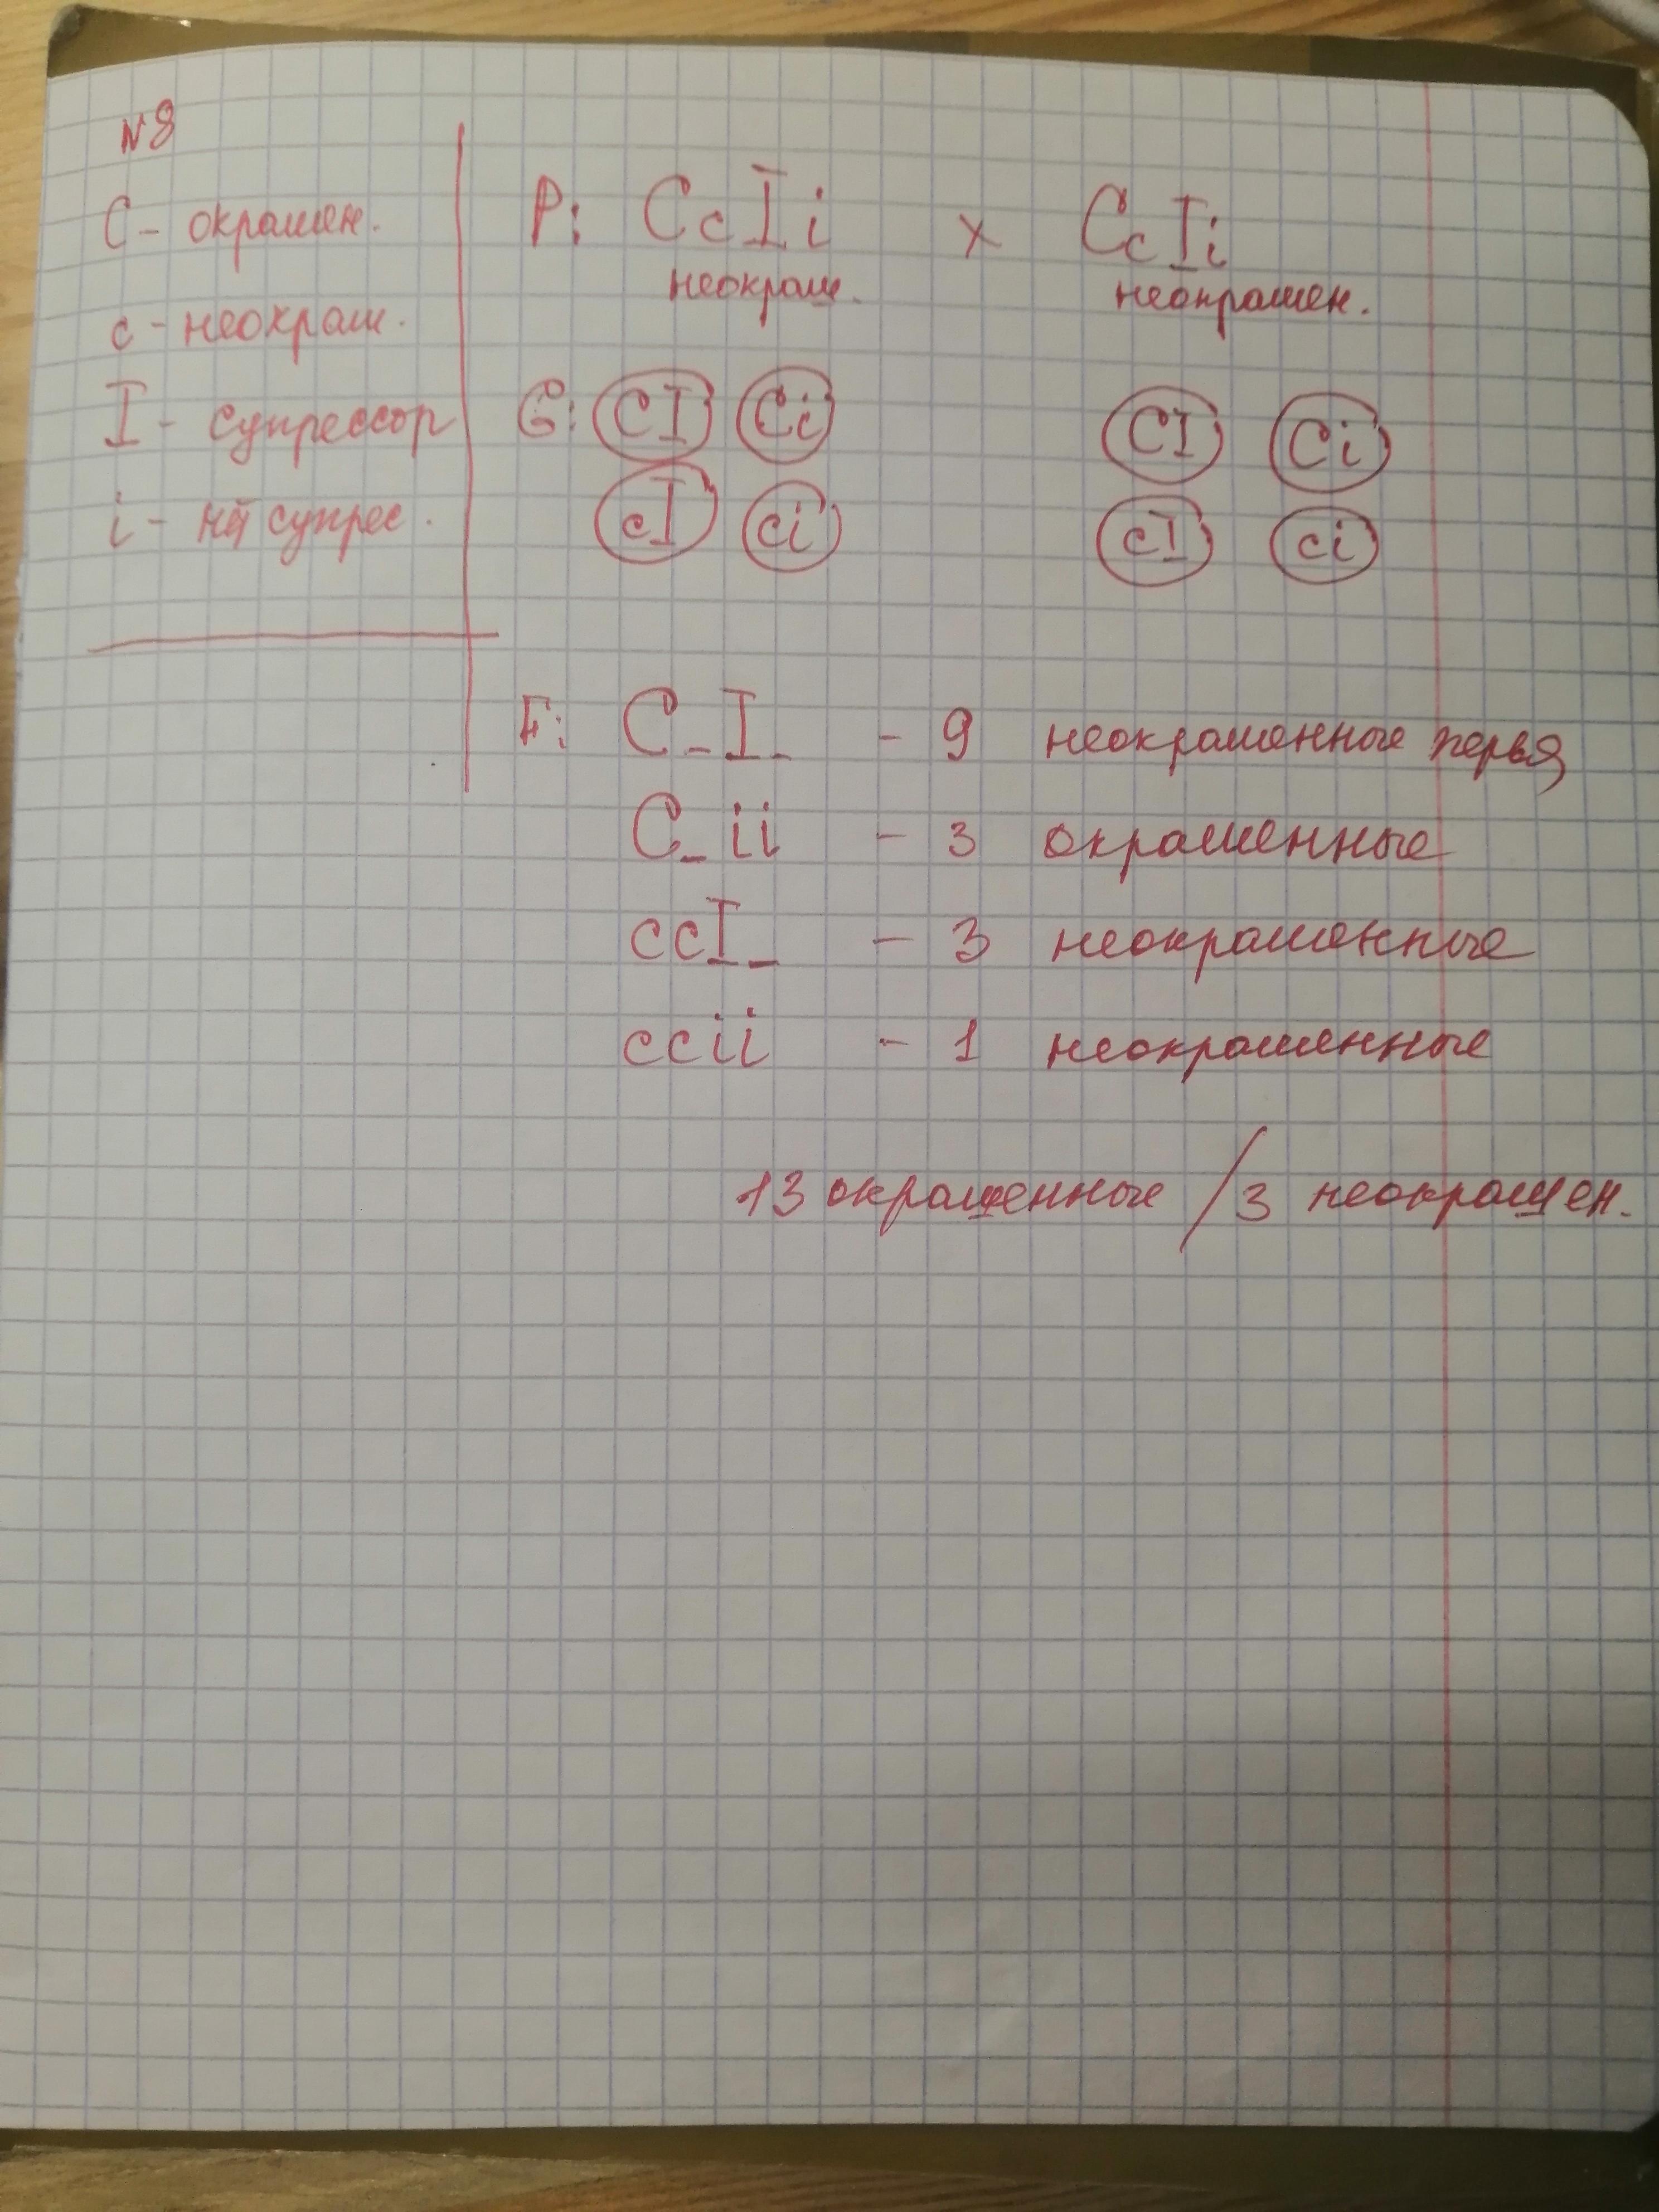 N8
C - окрашен.
c - неокраш.
I - супрессор
i - нет супрес.
P: CcIi x CcIi
неокраш. неокрашен.
G: CI Ci CI Ci
cI ci cI ci
F: C_I_ - 9 неокрашенные перья
C_ii - 3 окрашенные
ccI_ - 3 неокрашенные
ccii - 1 неокрашенные
13 окрашенные / 3 неокрашен.